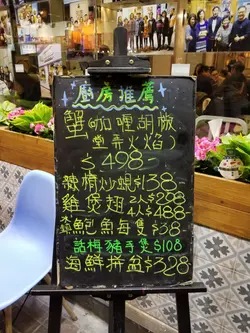 廚房推薦
蟹(咖哩胡椒
當弄火焰)
$498-
豉椒炒蜆$138-
雞煲翅 2人$298
4人$488-
鮑魚每隻$38-
話梅豬手煲$108
海鮮拼盆$328